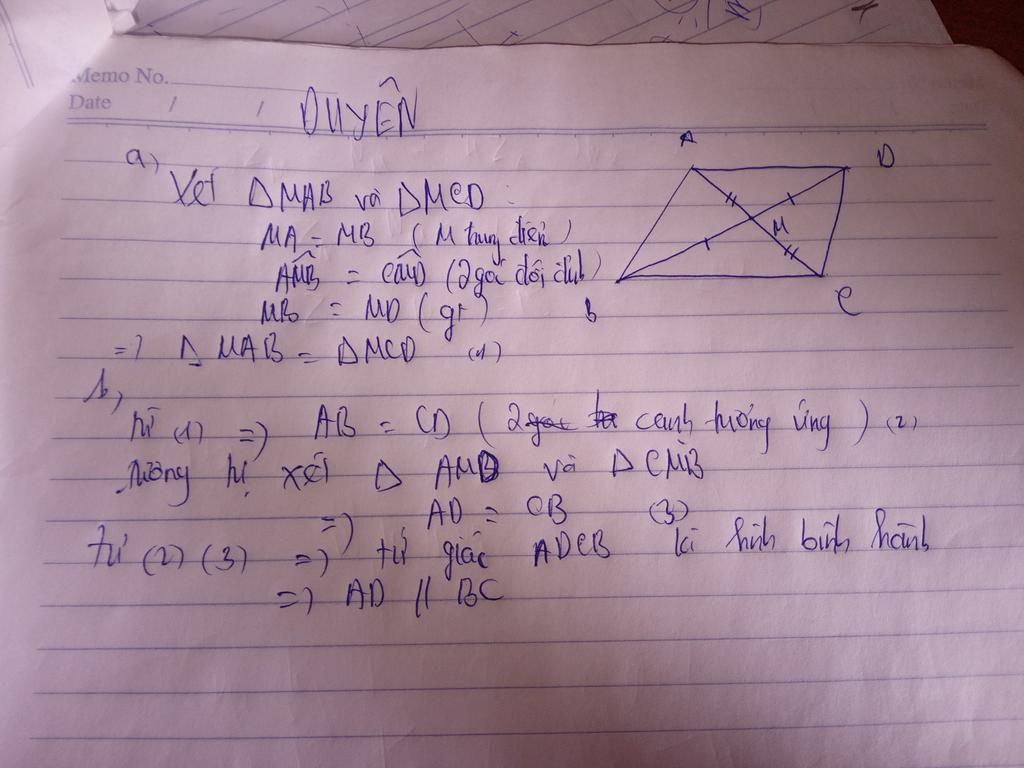 Memo No.
Date / /
DUYÊN
a)
Xét ΔMAB và ΔMCD :
MA = MB (M trung điểm)
AMB = CMD (2 góc đối đỉnh)
MB = MD (gt)
=> ΔMAB = ΔMCD (1)
A
D
M
B
C
b,
từ (1) => AB = CD (2 góc cạnh tương ứng) (2)
tương tự xét Δ AMD và Δ CMB
=> AD = CB (3)
từ (2) (3) => tứ giác ADCB là hình bình hành
=> AD // BC